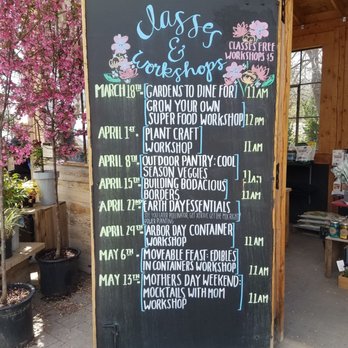 Classes
&
Workshops
CLASSES FREE
WORKSHOPS $5
MARCH 18TH GARDENS TO DINE FOR 11AM
GROW YOUR OWN
SUPER FOOD WORKSHOP 12PM
APRIL 1ST PLANT CRAFT
WORKSHOP 11AM
APRIL 8TH OUTDOOR PANTRY: COOL
SEASON VEGGIES 11AM
APRIL 15TH BUILDING BODACIOUS
BORDERS 11AM
APRIL 22ND EARTH DAY ESSENTIALS
PLANTING 11AM
APRIL 29TH ARBOR DAY CONTAINER
WORKSHOP 11AM
MAY 6TH MOVEABLE FEAST: EDIBLES
IN CONTAINERS WORKSHOP 11AM
MAY 13TH MOTHERS DAY WEEKEND:
MOCKTAILS WITH MOM
WORKSHOP 11AM